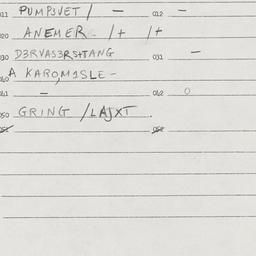 011 PUMP3VET / - 012 -
020 ANEMER - /+ /+
030 D3RVAS3RSTANG 031 -
060 A KAROM1SLE -
061 - 062 O
050 GRING /LAJXT .
051 052